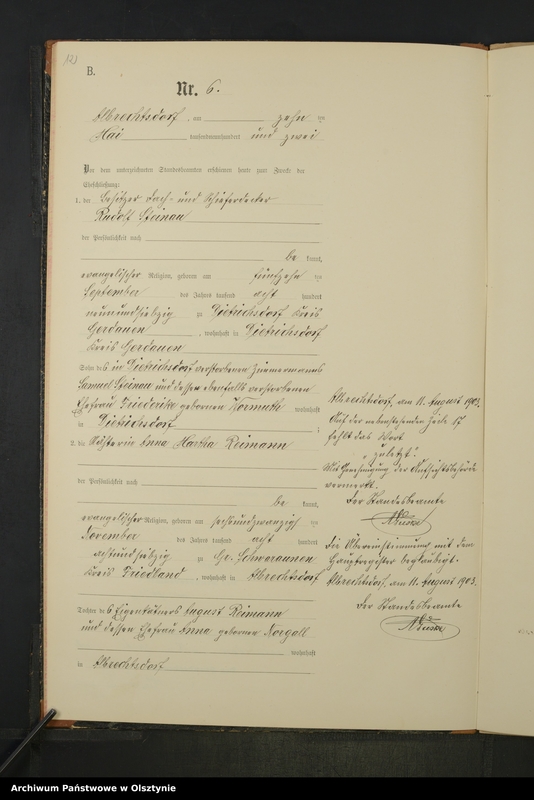 121
B.
Nr. 6.
Albrechtsdorf, am zehn ten
Mai tausendneunhundert und zwei
Vor dem unterzeichneten Standesbeamten erschienen heute zum Zwecke der
Eheschließung:
1. der Besitzer Dach- und Schieferdecker
Rudolf Steinau
der Persönlichkeit nach
be kannt,
evangelischer Religion, geboren am fünfzehn ten
September des Jahres tausend acht hundert
neunundsiebzig zu Dietrichsdorf Kreis
Gerdauen, wohnhaft in Dietrichsdorf
Kreis Gerdauen
Sohn des in Dietrichsdorf verstorbenen Zimmermanns
Samuel Steinau und dessen ebenfalls verstorbenen
Ehefrau Friederike geborenen Wormuth wohnhaft
in Dietrichsdorf;
2. die Nähterin Anna Martha Reimann
der Persönlichkeit nach
be kannt,
evangelischer Religion, geboren am sechsundzwanzig ten
November des Jahres tausend acht hundert
achtundsiebzig zu Gr. Schwaraunen
Kreis Friedland, wohnhaft in Albrechtsdorf
Tochter des Eigentümers August Reimann
und dessen Ehefrau Anna geborenen Norgall
wohnhaft
in Albrechtsdorf
Albrechtsdorf, am 11. August 1903.
Auf der nebenstehenden Zeile 17
fehlt das Wort
"zuletzt".
Mit Genehmigung der Aufsichtsbehörde
vermerkt.
Der Standesbeamte
Die Übereinstimmung mit dem
Hauptregister beglaubigt.
Albrechtsdorf, am 11. August 1903.
Der Standesbeamte
Archiwum Państwowe w Olsztynie